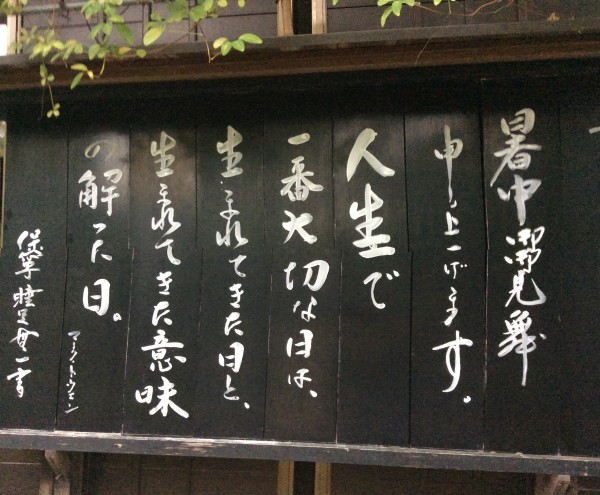 暑中御見舞
申し上げます。
人生で
一番大切な日は、
生まれてきた日と、
生まれてきた意味
の解った日。
マークトウェン